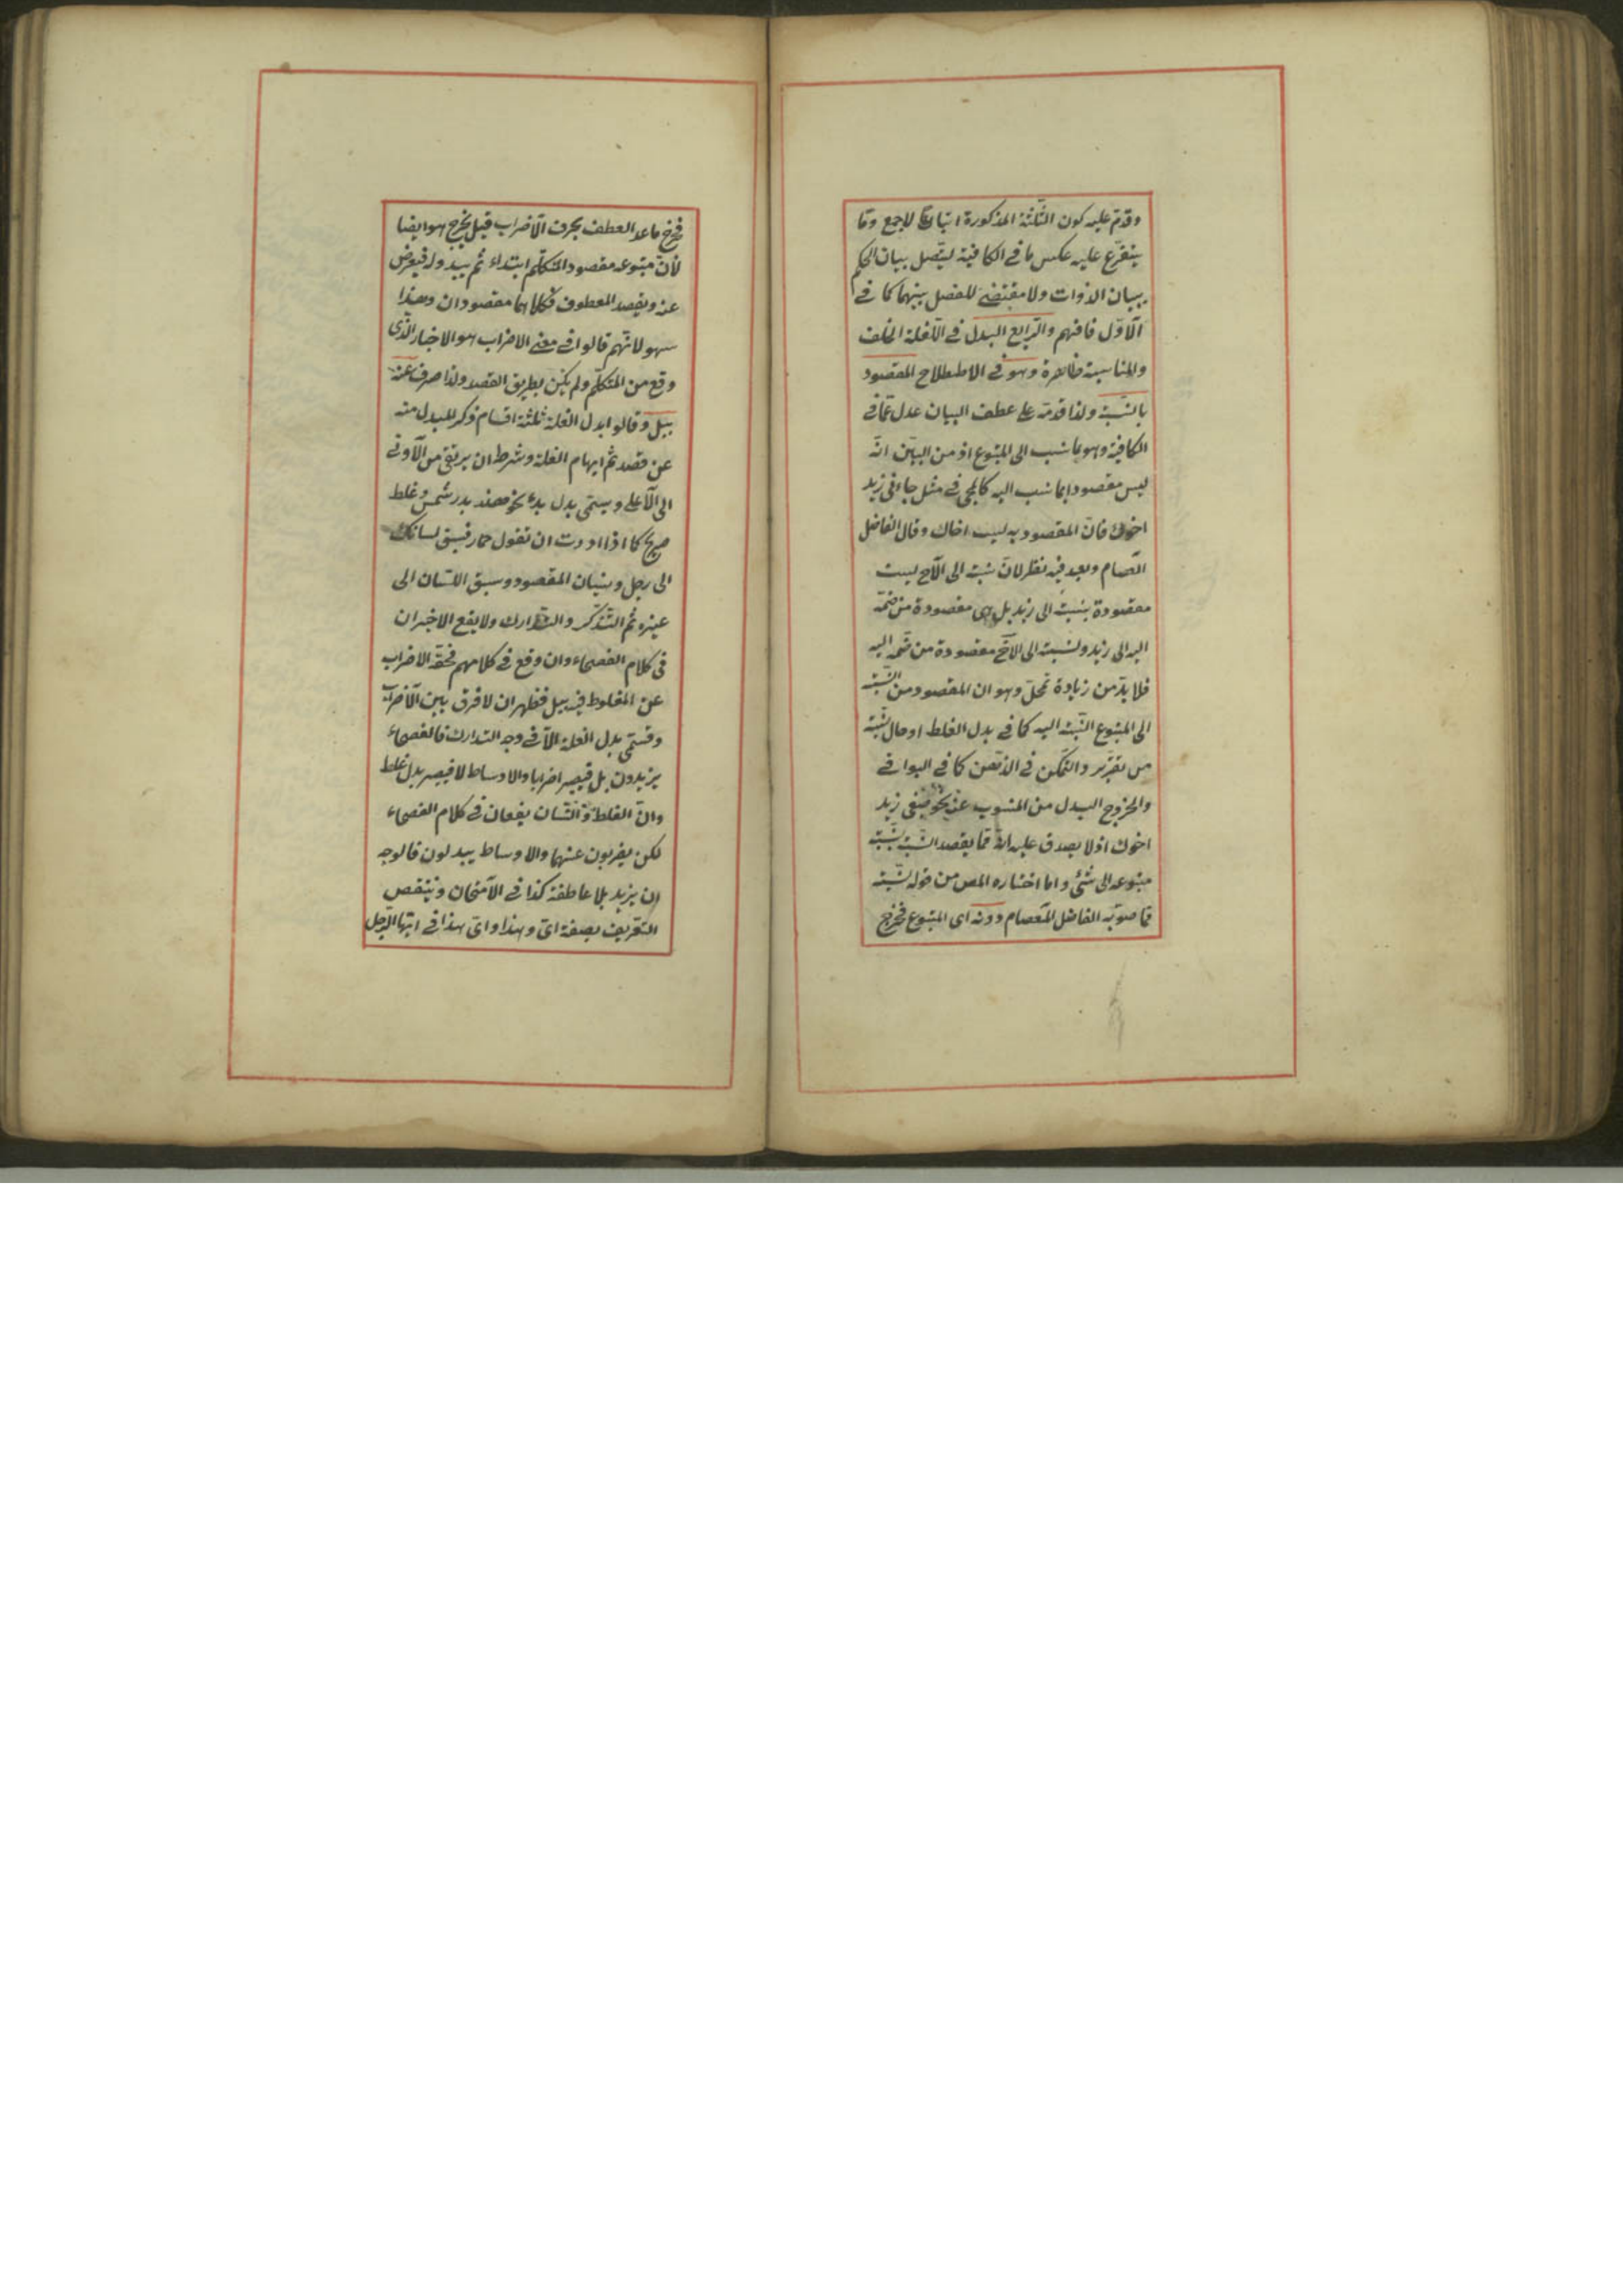 وقدم عليه كون الثلثة المذكورة اتباعا لاجمع وما
يتفرع عليه عكس ما في الكافية ليتصل ببيان الحكم
ببيان الذوات ولا مقتضى للفصل بينهما كما في
الاول فافهم والرابع البدل في اللغة الخلف
والمناسبة ظاهرة وهو في الاصطلاح المقصود
بالنسبة ولذا قدمه على عطف البيان عدل عما في
الكافية وهو بما نسب الى المتبوع اذ من البين انه
ليس مقصودا بما نسب اليه كالمجئ في مثل جاءني زيد
اخوك فان المقصود به ليس اخاك وقال الفاضل
العصام وبعد فيه نظر لان نسبته الى الاخ ليست
مقصودة بنسبته الى زيد بل هي مقصودة من ضمه
اليه الى زيد ونسبته الى الاخ مقصودة من ضمه اليه
فلا بد من زيادة تمحل وهو ان المقصود من النسبة
الى المتبوع النسبة اليه كما في بدل الغلط او حال نسبته
من تقرير والتمكن في الذهن كما في البواقي
والخروج البدل من المنسوب عنه نحو ضيفي زيد
اخوك اذ لا يصدق عليه انه مما يقصد النسبة بنسبة
متبوعه الى شئ واما اختاره المص من قوله بنسبة
مما صوبه الفاضل العصام دونه اى المتبوع فخرج
فخرج ما عدا العطف بحرف الاضراب قيل يخرج هو ايضا
لان متبوعه مقصود المتكلم ابتداء ثم يبدو له فيعرض
عنه ويقصد المعطوف فكلاهما مقصودان وهذا
سهو لانهم قالوا في معنى الاضراب هو الاخبار الذى
وقع من المتكلم ولم يكن بطريق القصد ولذا صرف عنه
ببل وقالوا بدل الغلط ثلثة اقسام ذكر المبدل منه
عن قصد ثم ابهام الغلط وشرطه ان يرتقى من الادنى
الى الاعلى ويسمى بدل بدء نحو هند بدر شمس وغلط
صريح كما اذا اردت ان تقول حمار فسبق لسانك
الى رجل ونسيان المقصود وسبق اللسان الى
غيره ثم التذكر والتدارك ولا يقع الاخيران
فى كلام الفصحاء وان وقع في كلامهم فحقه الاضراب
عن المغلوط فيه ببل فظهر ان لا فرق بين الاضراب
وقسمى بدل الغلط الا في وجه التدارك فالفصحاء
يزيدون بل فيصير اضرابا والاوساط لا فيصير بدل غلط
وان الغلط والنسيان يقعان في كلام الفصحاء
لكن يضربون عنهما والاوساط يبدلون فالوجه
ان يزيد بلا عاطفة كذا في الامتحان وينتقض
التعريف بصفة اى وهذا واى هذا في ايها الرجل